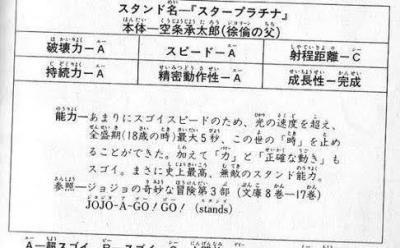 スタンド名―『スタープラチナ』
本体―空条承太郎(徐倫の父)
破壊力―A スピード―A 射程距離―C
持続力―A 精密動作性―A 成長性―完成
能力―あまりにスゴイスピードのため、光の速度を超え、
全盛期(18歳の時)最大5秒、この世の「時」を止め
ることができた。加えて「力」と「正確な動き」も
スゴイ。まさに史上最高、無敵のスタンド能力。
参照―ジョジョの奇妙な冒険第3部(文庫8巻―17巻)
JOJO-A-GO!GO!(stands)
A―超スゴイ B―スゴイ